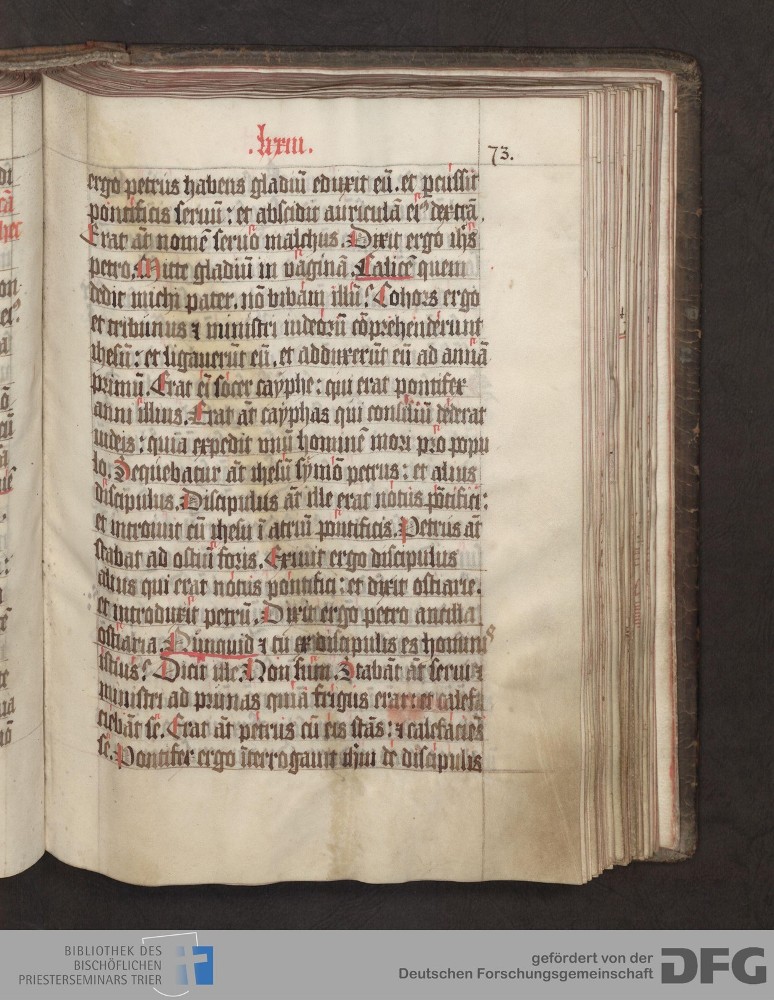 .lxxiii.
73.
ergo petrus habens gladiū eduxit eū. et p̄cussit
pontificis seruū : et abscidit auriculā ei⁹ dextrā.
Erat āt nomē seruo malchus. Dixit ergo ihs̄
petro. Mitte gladiū in vaginā. Calicē quem
dedit michi pater. nō bibam illū? Cohors ergo
et tribunus ⁊ ministri iudeorū cōprehenderunt
ihesū : et ligauerūt eū. et adduxerūt eū ad annā
primū. Erat ei socer cayphe : qui erat pontifex
anni illius. Erat āt cayphas qui consiliū dederat
iudeis : quia expedit vnū hominē mori pro popu
lo. Sequebatur āt ihesū symō petrus : et alius
discipulus. Discipulus āt ille erat notus pōtifici :
et introiuit cū ihesu ī atriū pontificis. Petrus āt
stabat ad ostiū foris. Exiuit ergo discipulus
alius qui erat notus pontifici : et dixit ostiarie.
et introduxit petrū. Dixit ergo petro ancilla
ostiaria. Nūnquid ⁊ tu ex discipulis es hominis
istius? Dicit ille. Non sum. Stabāt āt serui ⁊
ministri ad prunas quia frigus erat : et calefa
ciebāt se. Erat āt petrus cū eis stās : ⁊ calefaciēs
se. Pontifex ergo īterrogauit ihm̄ de discipulis
di
cā
hec
on
BIBLIOTHEK DES
BISCHÖFLICHEN
PRIESTERSEMINARS TRIER
gefördert von der
Deutschen Forschungsgemeinschaft
DFG